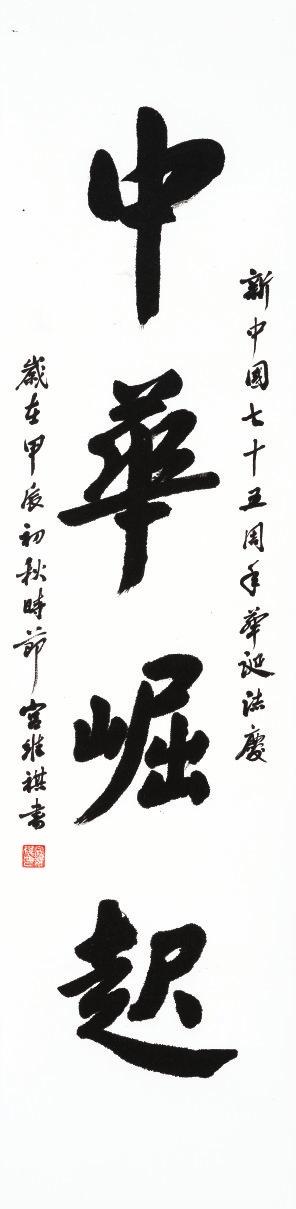 新中國七十五周年華誕法慶
中華崛起
歲在甲辰初秋時節宮維祺書